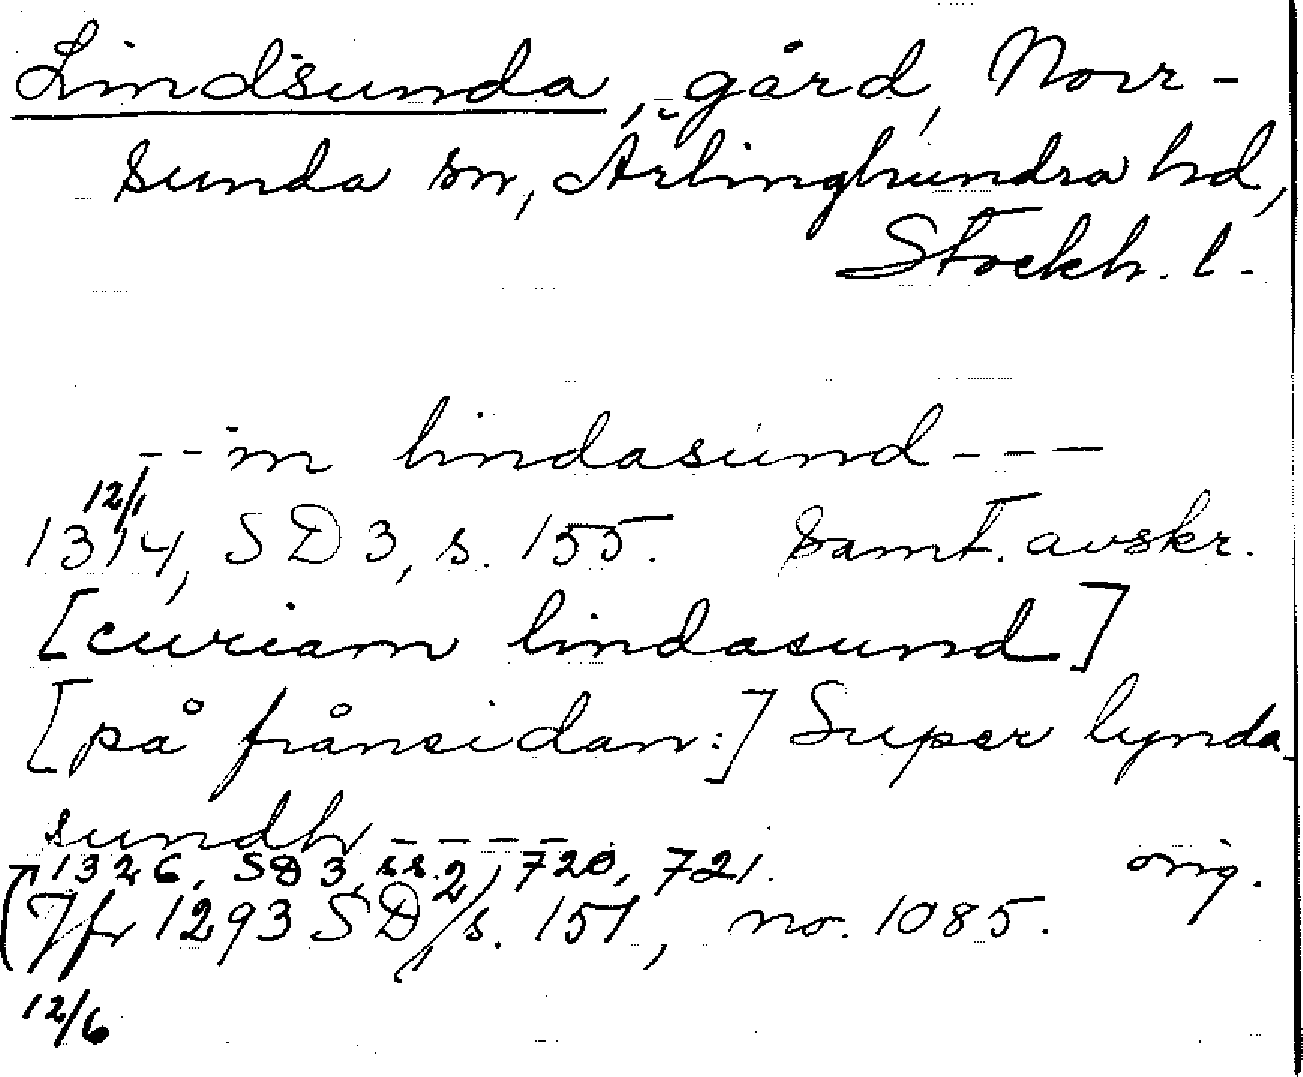 Lindsunda, gård, Norr-
sunda sn, Ärlinghundra hd,
Stockh. l.
--in lindasund---
12/1
1314, SD 3, s. 155. Samt. avskr.
[curiam lindasund]
[på frånsidan:] Super lynda
sundh ----
1326, SD 3, ss. 720, 721. orig.
(Jfr 1293 SD 2, s. 151, no. 1085.
12/6